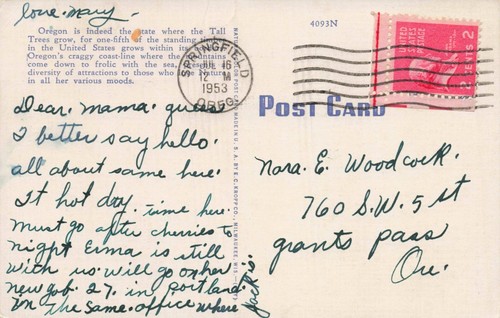 love. Mary-
Oregon is indeed the state where the Tall
Trees grow, for one-fifth of the standing
in the United States grows within its
Oregon's craggy coast-line where the mountains
come down to frolic with the sea,
diversity of attractions to those who nature
in all her various moods.
4093N
SPRINGFIELD
16
12
1953
OREG.
UNITED STATES
POSTAGE
2 CENTS 2
POST CARD
MADE IN U.S.A. BY E.C. KROPP CO., MILWAUKEE, WIS.
Dear. mama. guess
I better say hello.
all about same here.
It hot day. time here.
Must go after cherries to
night Erma is still
with us. will go on her
new job. 27. in portland.
in the same. office where
Jack is.
Nora. E. Woodcock.
760 S.W. 5 st
grants pass
Ore.